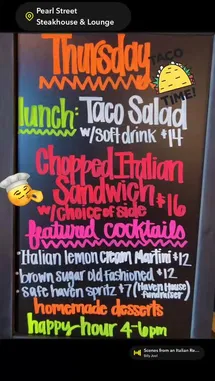 Pearl Street
Steakhouse & Lounge
Thursday
TACO
TIME!
lunch: Taco Salad
w/soft drink $14
Chopped Italian
Sandwich $16
w/choice of side
featured cocktails
*Italian lemon cream Martini $12
*brown sugar old fashioned $12
*safe haven spritz $7 (Haven House
fundraiser)
homemade desserts
happy-hour 4-6pm
Scenes from an Italian Re...
Billy Joel